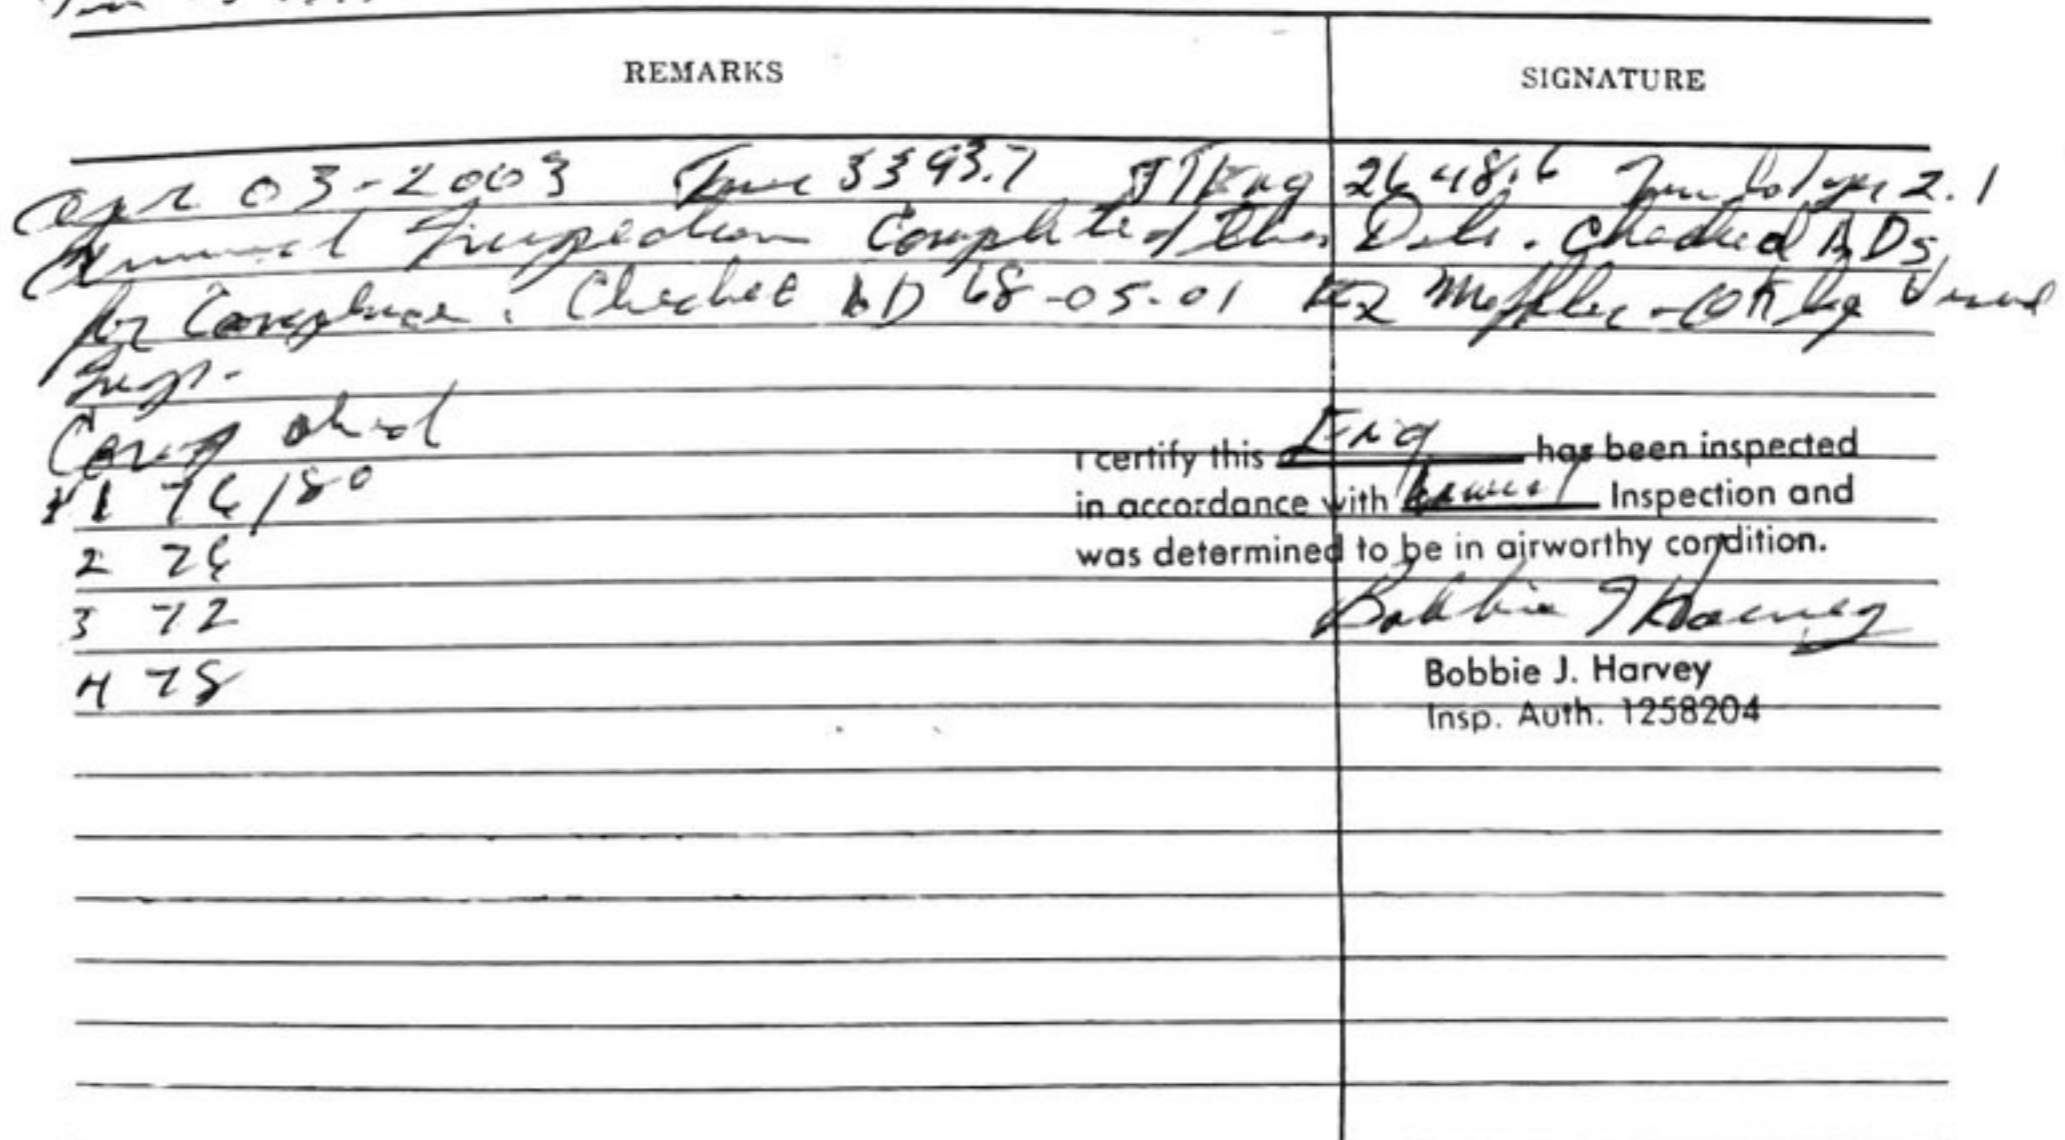 REMARKS SIGNATURE
Apr 03-2003 Time 3393.7 TTEng 2648.6 2.1
Annual Inspection Completed this Date. Checked ADs
for Compliance. Checked AD 68-05-01 Muffler - OK by Visual
Insp.
Comp check
#1 76/80
2 76
3 72
4 78
I certify this Eng has been inspected
in accordance with Annual Inspection and
was determined to be in airworthy condition.
Bobbie J Harvey
Bobbie J. Harvey
Insp. Auth. 1258204